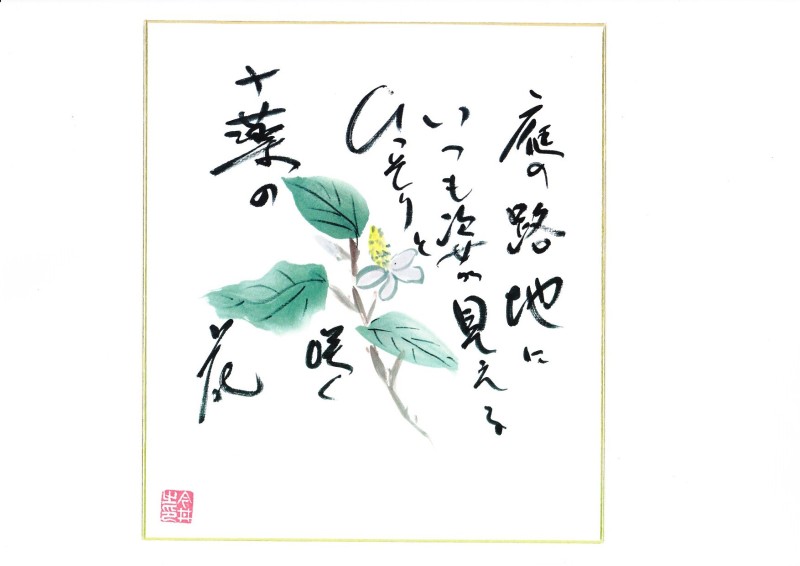 庭の路地に
いつも姿の見える
ひっそりと
咲く
十薬の
花